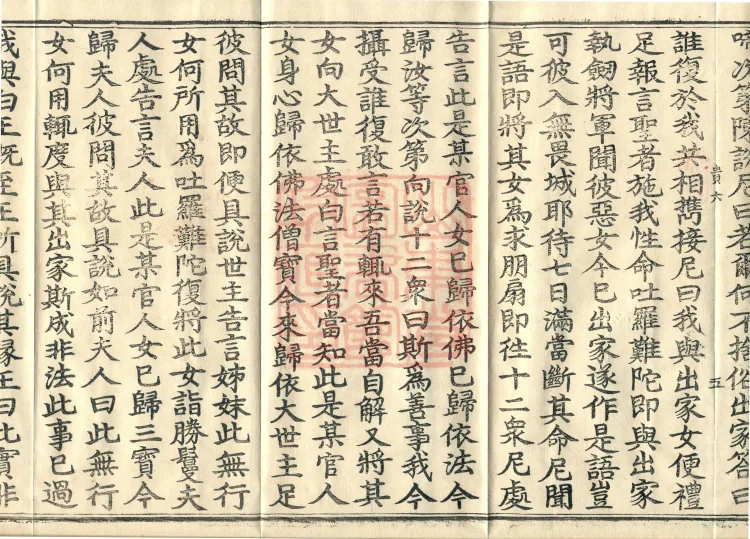 啼次第陳說尼曰若爾何不捨俗出家答曰
貴六 五
誰復於我共相攜接尼曰我與出家女便禮
足報言聖者施我性命吐羅難陀即與出家
執劒將軍聞彼惡女今巳出家遂作是語豈
可彼入無畏城耶待七日滿當斷其命尼聞
是語即將其女爲求朋扇即徃十二衆尼處
告言此是某官人女巳歸依佛巳歸依法今
歸汝等次第向說十二衆曰斯爲善事我今
攝受誰復敢言若有輒來吾當自解又將其
女向大世主處白言聖者當知此是某官人
女身心歸依佛法僧寶今來歸依大世主足
彼問其故即便具說世主告言姊妹此無行
女何所用爲吐羅難陀復將此女詣勝鬘夫
人處告言夫人此是某官人女巳歸三寶今
歸夫人彼問其故具說如前夫人曰此無行
女何用輒度與其出家斯成非法此事巳過
我與白王旣至王所具說其緣王曰此實非